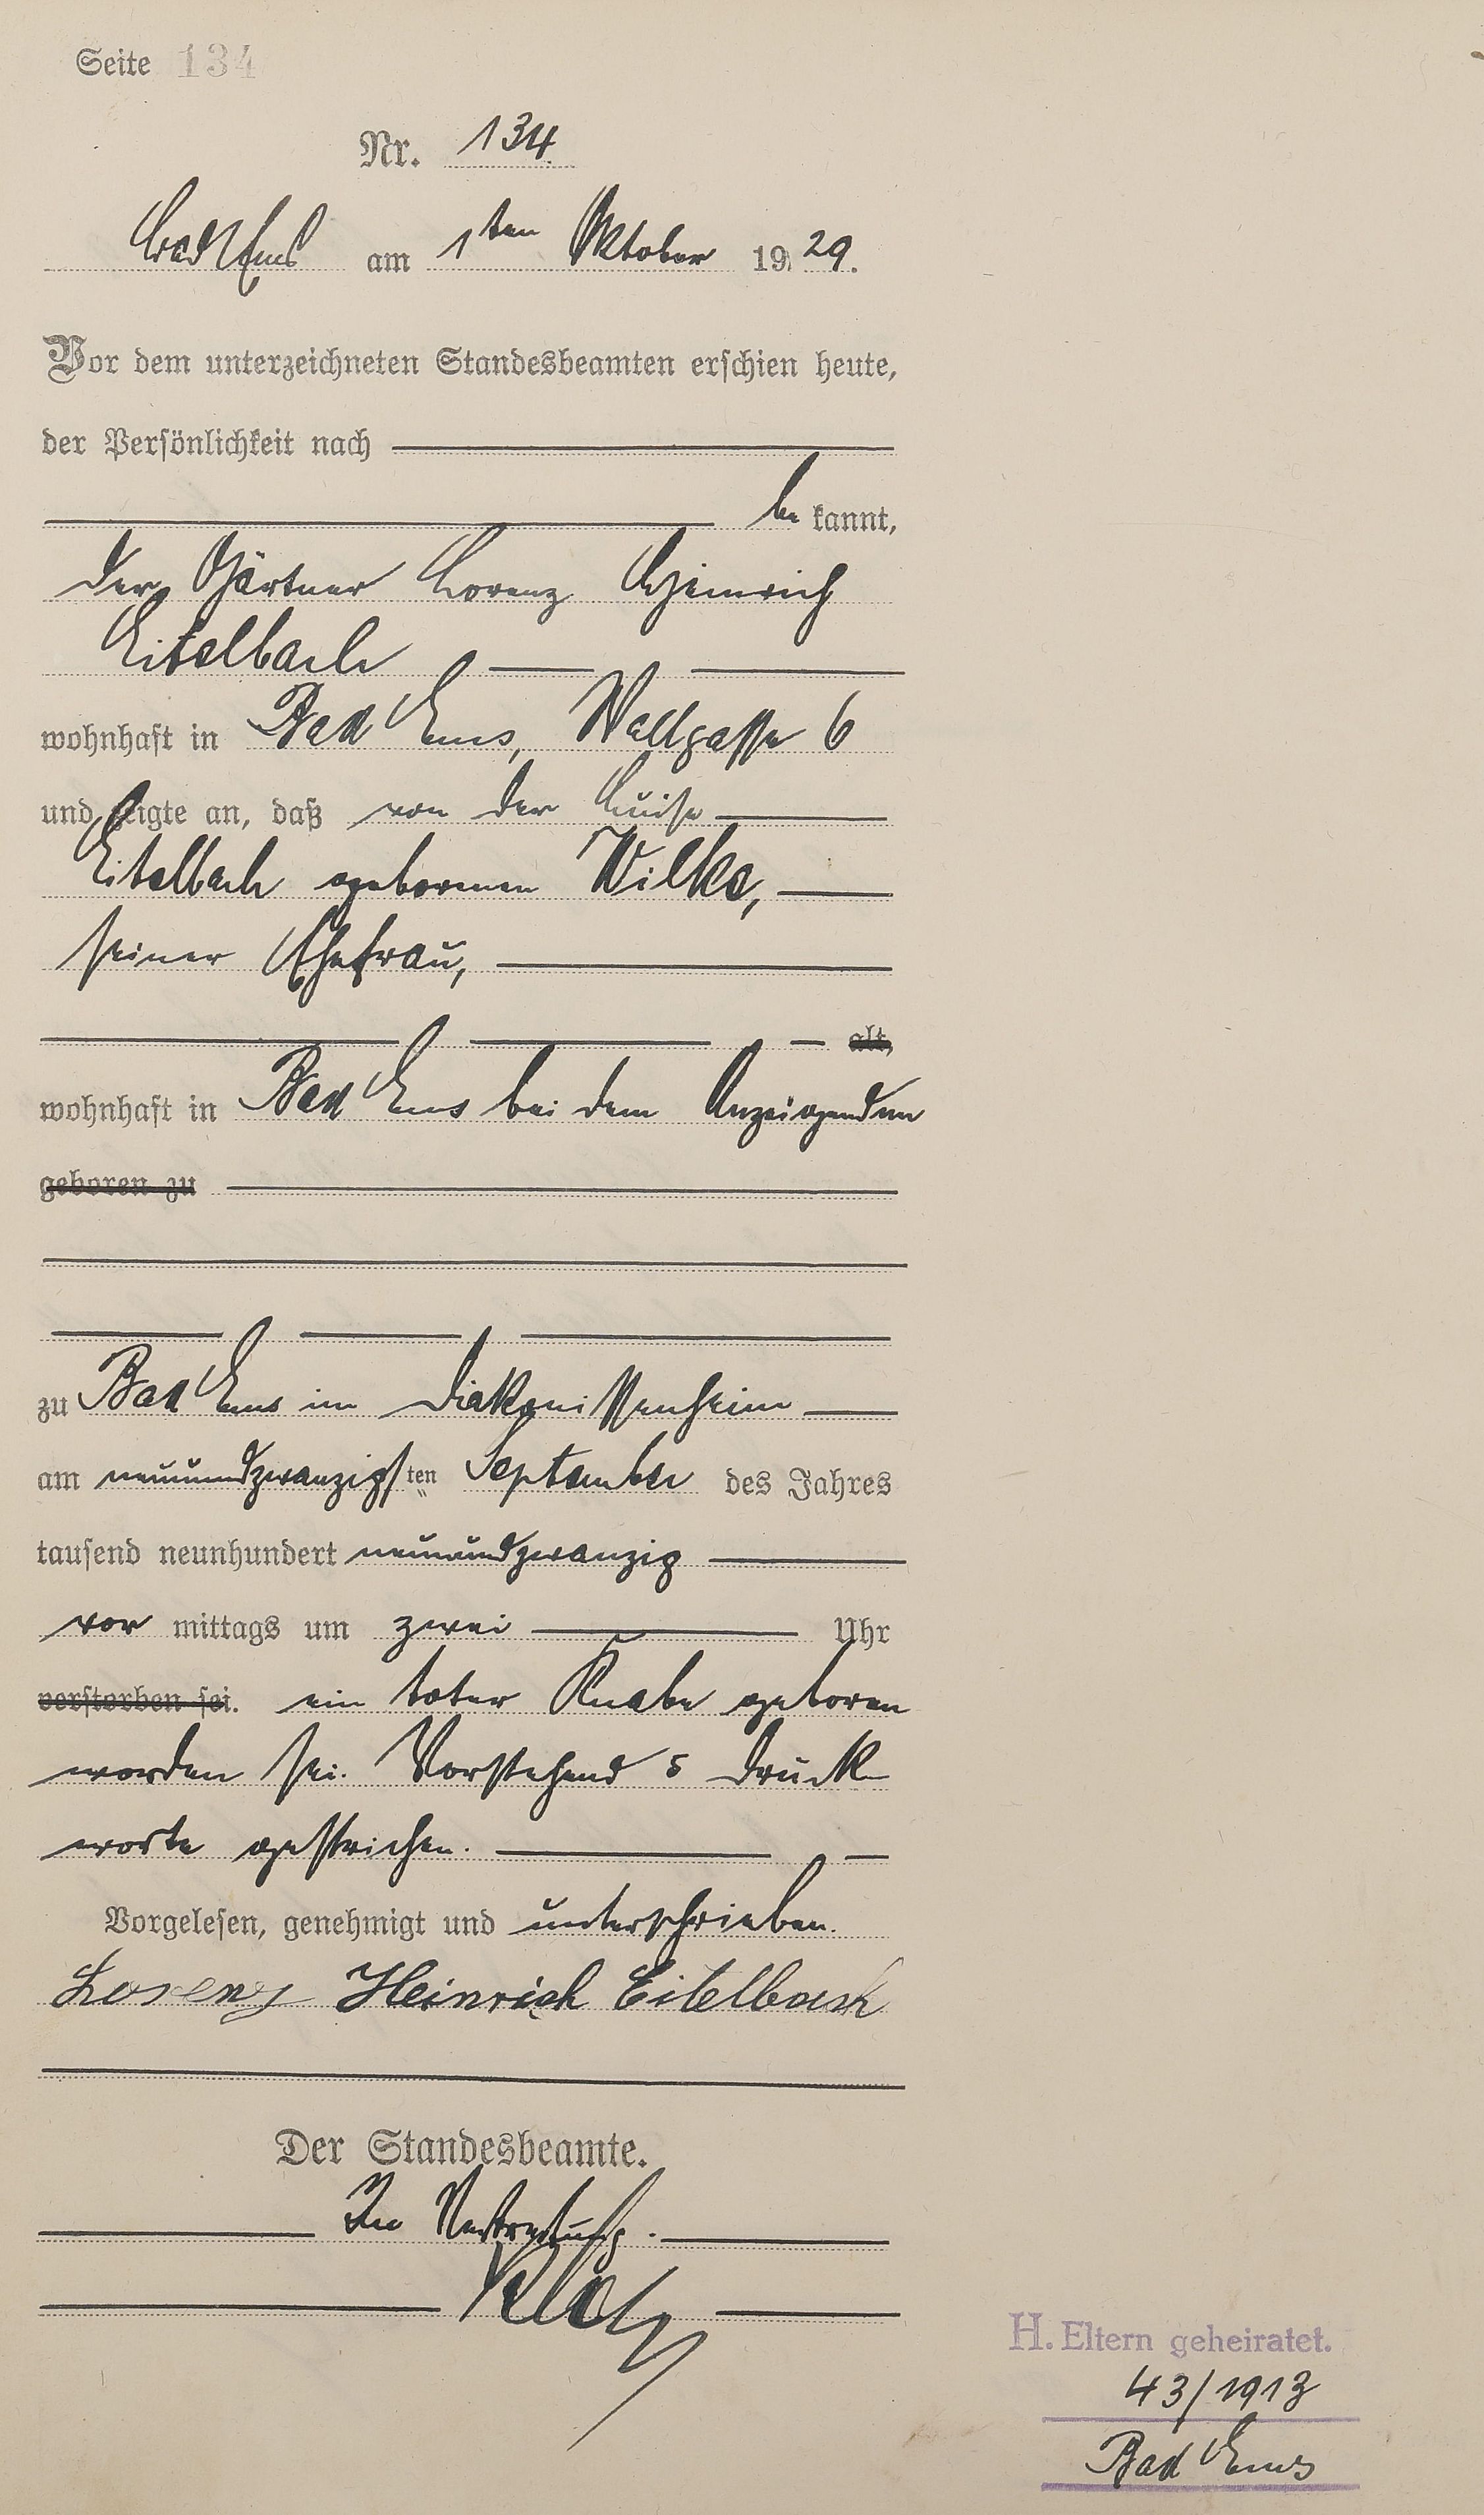 Seite 134
Nr. 134
Bad Ems am 1ten Oktober 1929.
Vor dem unterzeichneten Standesbeamten erschien heute,
der Persönlichkeit nach
be kannt,
der Gärtner Lorenz Heinrich
Eitelbach
wohnhaft in Bad Ems, Wallgasse 6
und zeigte an, daß von der Luise
Eitelbach geborenen Wilke,
seiner Ehefrau,
alt,
wohnhaft in Bad Ems bei dem Anzeigenden
geboren zu
zu Bad Ems im Diakonissenheim
am neunundzwanzigsten September des Jahres
tausend neunhundert neunundzwanzig
vor mittags um zwei Uhr
verstorben sei. ein toter Knabe geboren
worden sei. Vorstehend 5 Druck-
worte gestrichen.
Vorgelesen, genehmigt und unterschrieben.
Lorenz Heinrich Eitelbach
Der Standesbeamte.
In Vertretung.
H. Eltern geheiratet.
43/1913
Bad Ems